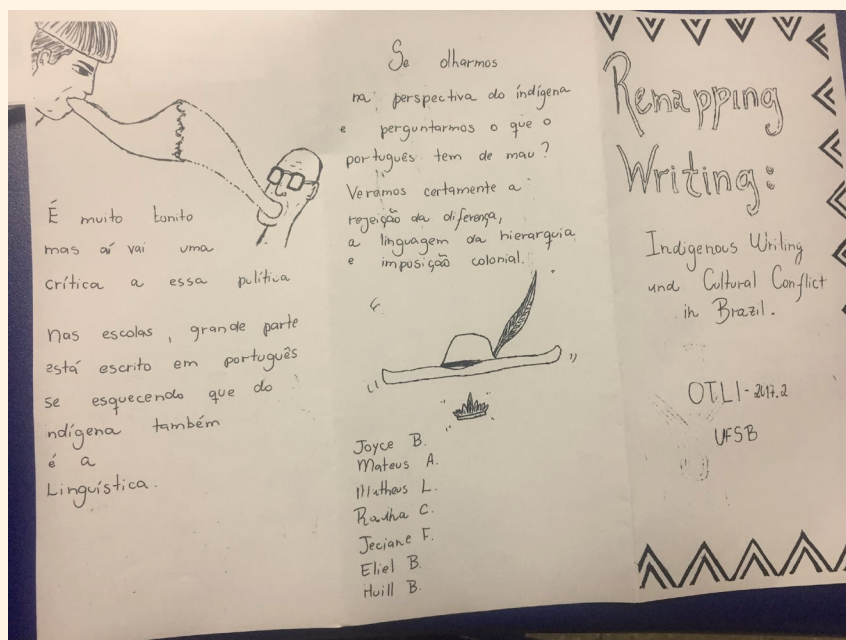 É muito bonito
mas aí vai uma
crítica a essa política
Nas escolas, grande parte
está escrito em português
se esquecendo que do
ndígena também
é a
Linguística.
Se olharmos
na perspectiva do indígena
e perguntarmos o que o
português tem de mau?
Veremos certamente a
rejeição da diferença,
a linguagem da hierarquia
e imposição colonial.
Joyce B.
Mateus A.
Matheus L.
C.
Jeciane F.
Eliel B.
Huill B.
Remapping
Writing:
Indigenous Writing
und Cultural Conflict
in Brazil.
OTLI-2017.2
UFSB